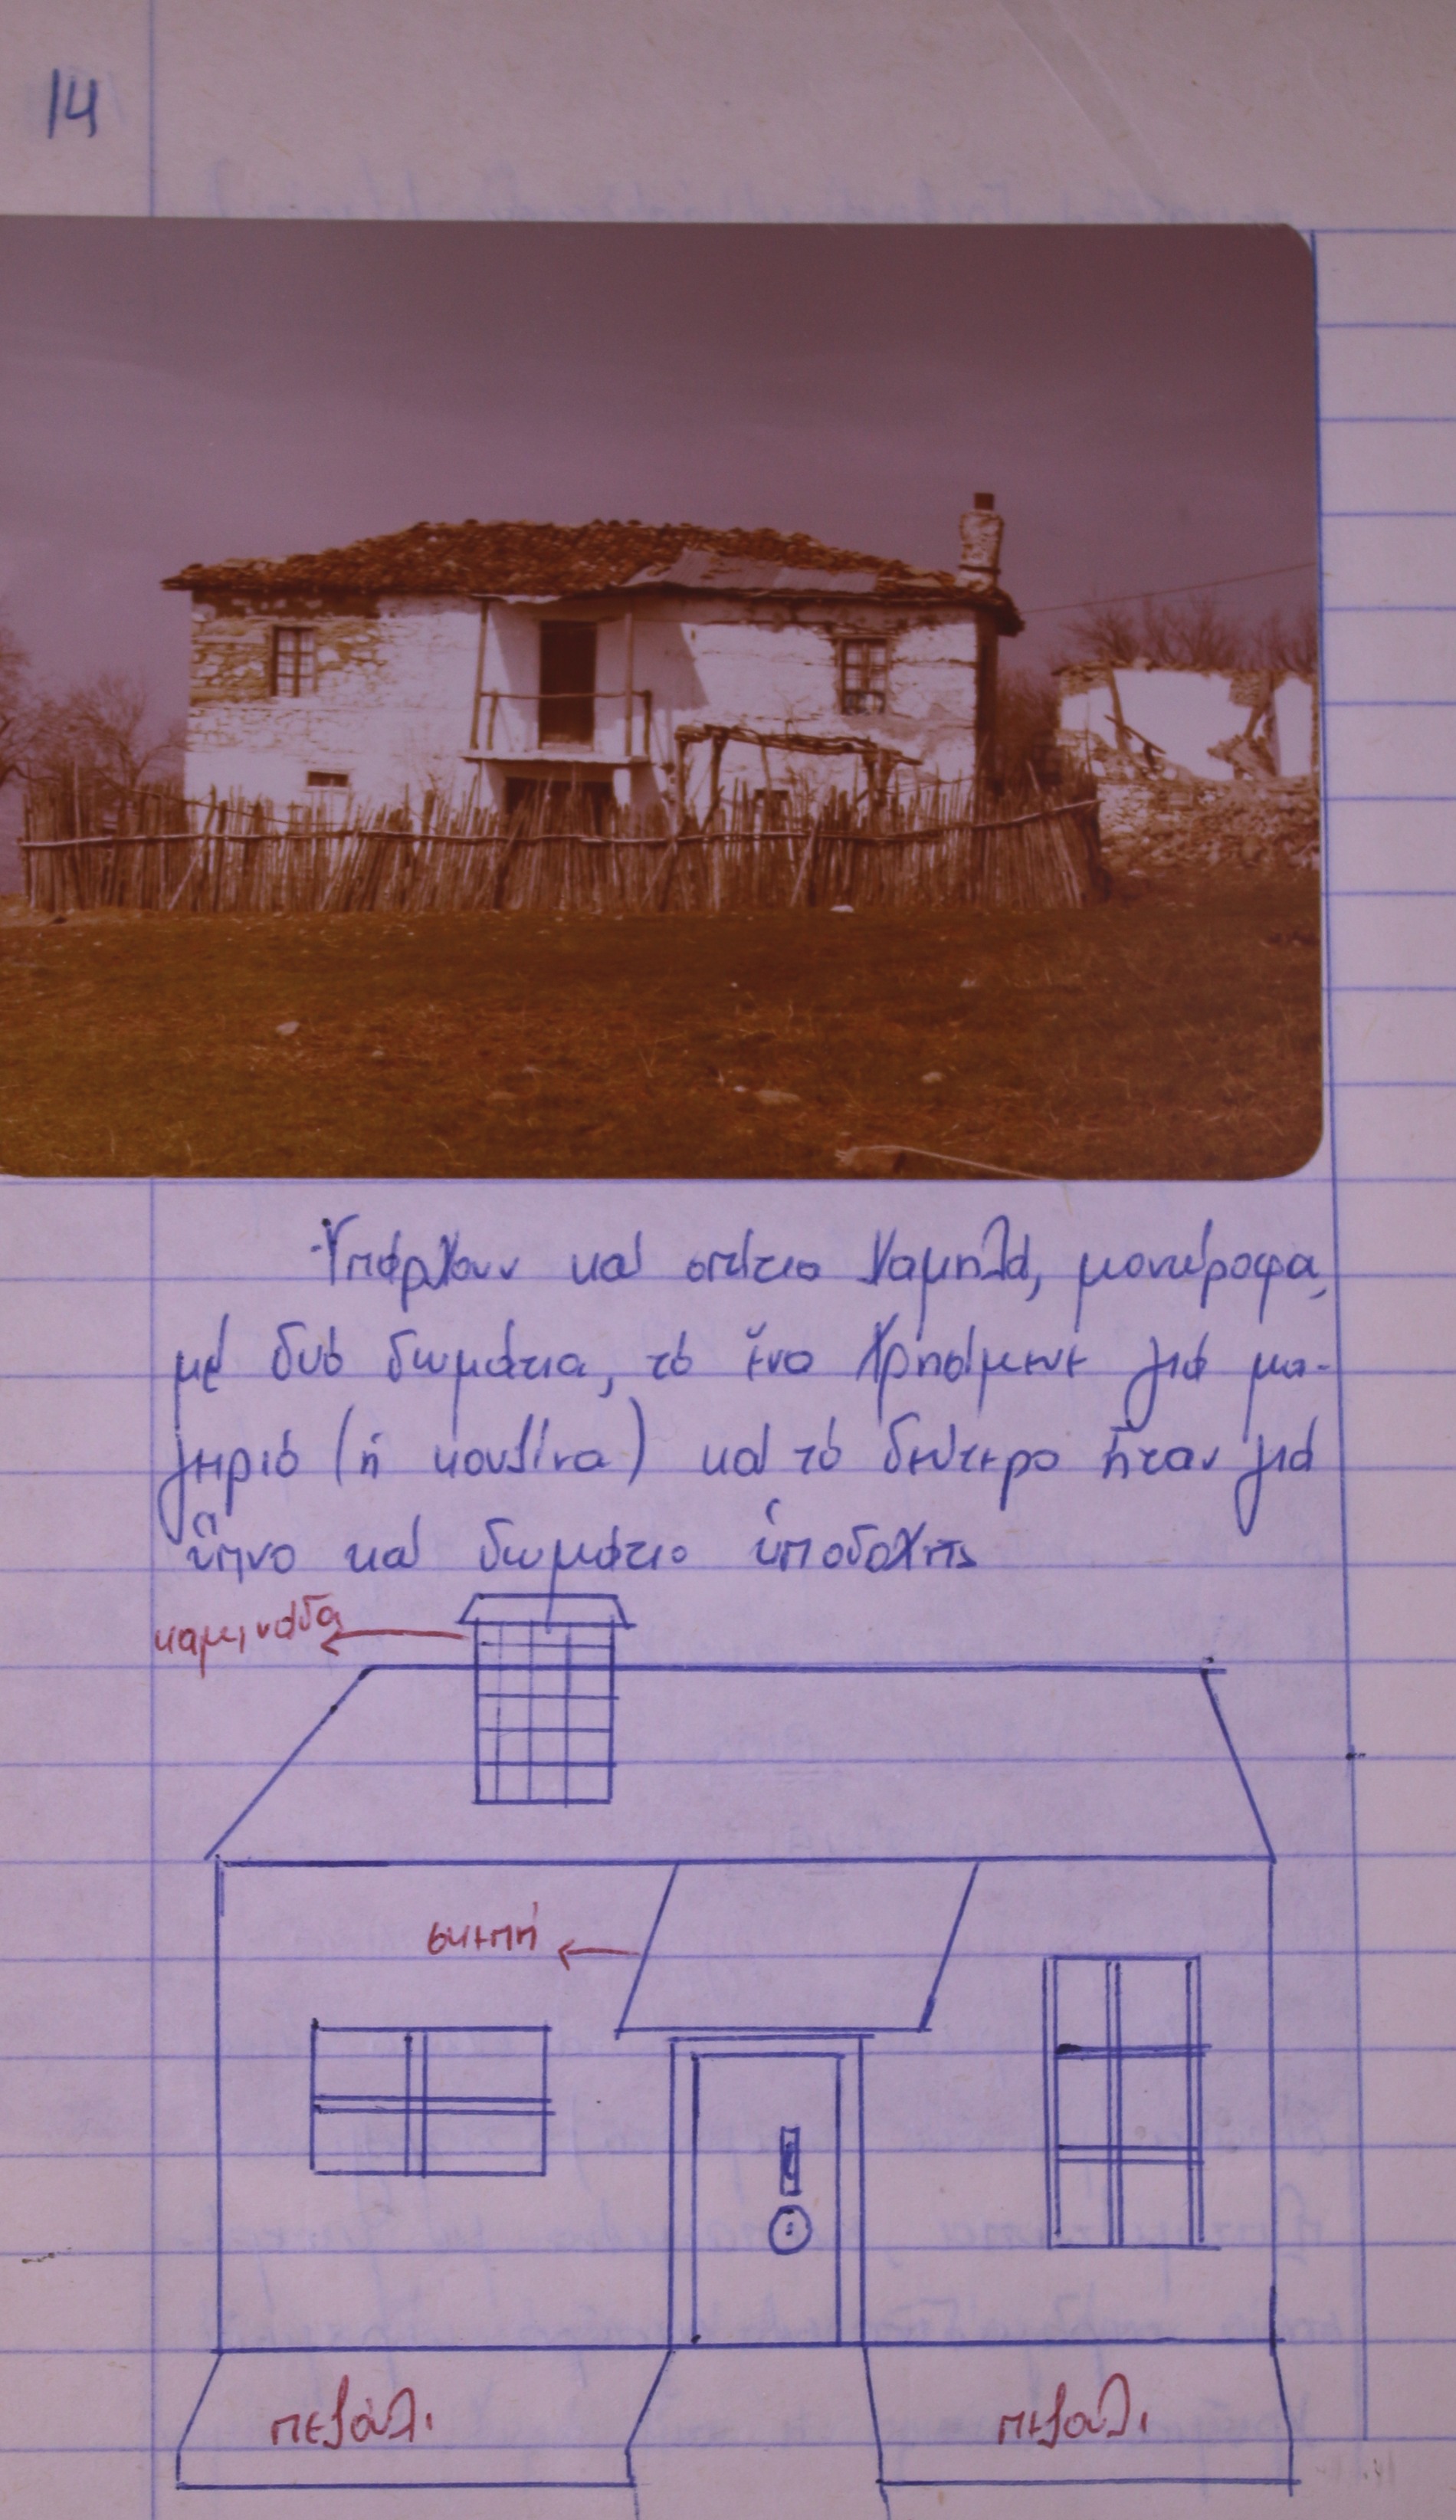 14
Ὑπάρχουν καί σπίτια χαμηλά, μονώροφα,
μέ δυό δωμάτια, τό ἕνα χρησίμευε γιά μα-
γειριό (ἡ κουζίνα) καί τό δεύτερο ἦταν γιά
ὕπνο καί δωμάτιο ὑποδοχῆς
καμινάδα
σκεπή
πεζούλι
πεζούλι